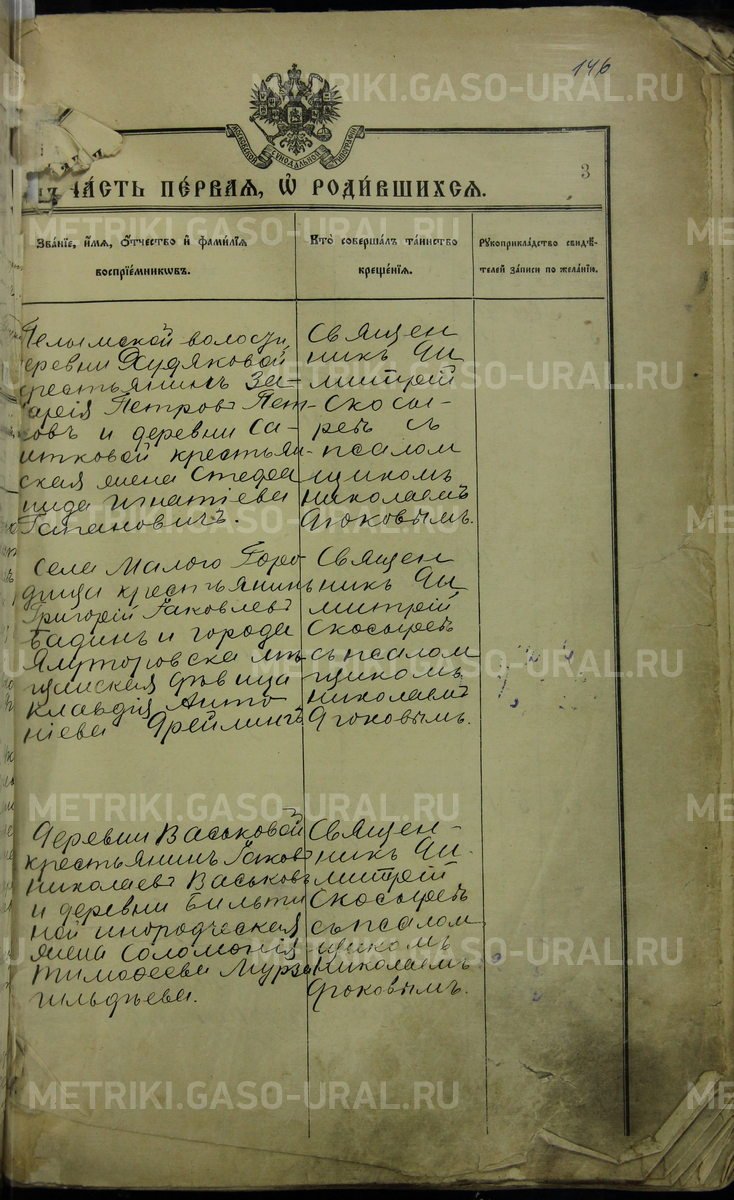 146
МОСКОВСКОЙ СѴНОДАЛЬНОЙ ТИПОГРАФІИ
3
ЧА́СТЬ ПЕ́РВАЯ, Ѡ҆ РОДИ́ВШИХСЯ.
Зва́ніе, и҆́мя, ѻ҆́тчество и҆ фами́лія
воспріе́мниковъ.
Кто̀ соверша́лъ та́инство
креще́нія.
Рꙋкоприкла́дство свидѣ́-
телей за́писи по жела́нію.
Пелымской волости,
деревни Худяковой
крестьянинъ За-
харія Петровъ Пет-
ковъ и деревни Са-
крестьян-
ская жена Стефа
нида Игнатіева
Гапановичъ.
Священ
никъ Ди
митрій
Скосы-
ревъ съ
псалом
щикомъ
Николаемъ
Ягоковымъ.
Села Малого Горо
дища крестьянинъ
Григорій Яковлевъ
Бадинъ и города
Ялуторовска мѣ
щанская дѣвица
Клавдія Анто
ніева Фрейлингъ
Священ
никъ Ди
митрій
Скосыревъ
съ псалом
щикомъ
Николаемъ
Ягоковымъ.
Деревни Васьковой
крестьянинъ Яковъ
Николаевъ Васьковъ
и деревни Бильти
ной инородческая
жена Соломонія
Тимофеева Мурза
гильдѣева.
Священ-
никъ Ди-
митрій
Скосыревъ
съ псалом
щикомъ
Николаемъ
Ягоковымъ.
METRIKI.GASO-URAL.RU
METRIKI.GASO-URAL.RU
METRIKI.GASO-URAL.RU
METRIKI.GASO-URAL.RU
METRIKI.GASO-URAL.RU
METRIKI.GASO-URAL.RU
METRIKI.GASO-URAL.RU
METRIKI.GASO-URAL.RU